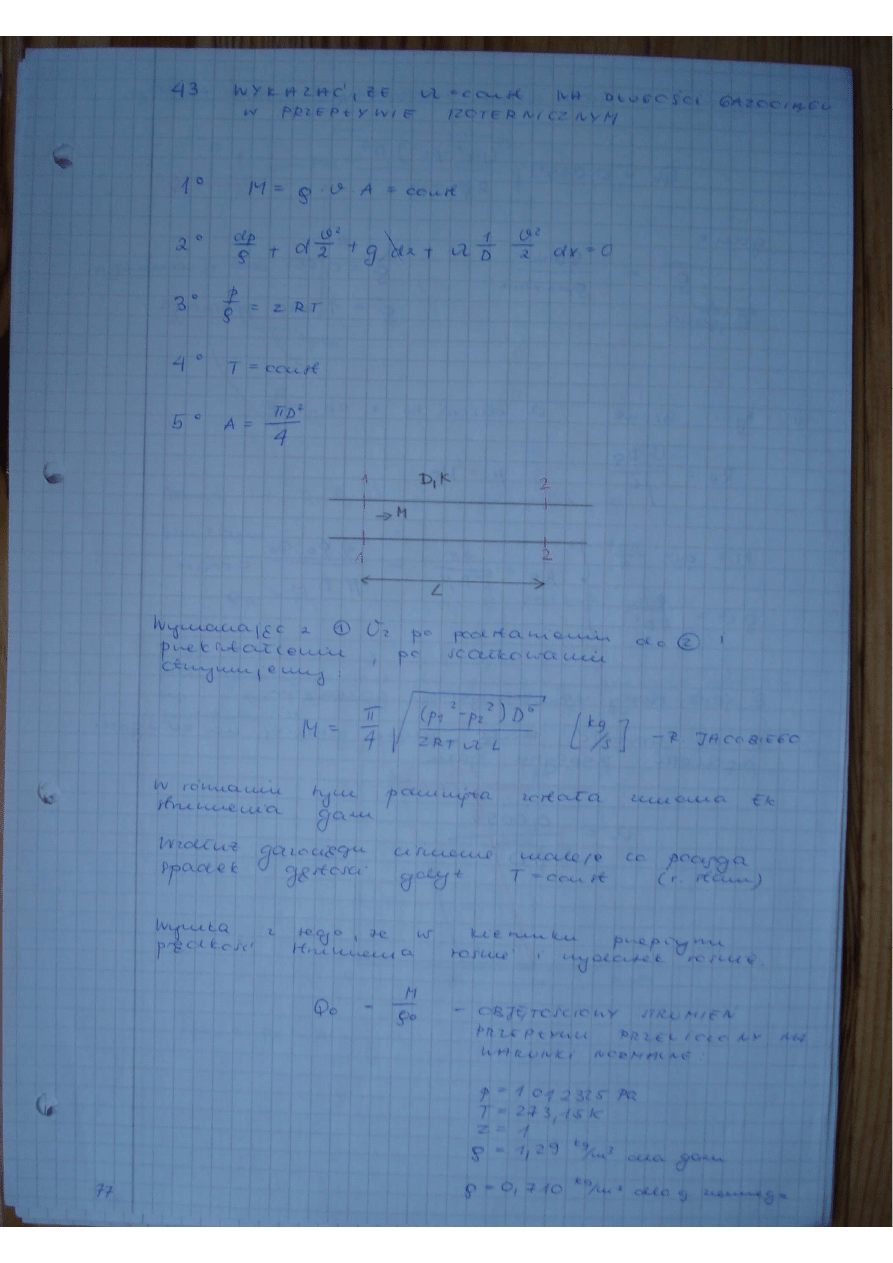 43 WYKAZAĆ, ŻE λ = const NA DŁUGOŚCI GAZOCIĄGU
W PRZEPŁYWIE IZOTERMICZNYM
1° M = ρ · v · A = const
2° dp/ρ + d v²/2 + g dz + λ 1/D v²/2 dx = 0
3° p/ρ = z RT
4° T = const
5° A = πD²/4
1 D, K 2
→ M
1 2
L
po podstawieniu do ② i
przekształceniu, po scałkowaniu
otrzymujemy:
M = π/4 √((p₁² - p₂²) D⁵ / ZRT λ L) [kg/s] - R. JACOBIEGO
W równaniu tym pominięta została zmiana Ek
strumienia gazu
Wzdłuż gazociągu ciśnienie maleje co pociąga
spadek gęstości gdyż T = const (r. stanu)
Wynika z tego, że w kierunku przepływu
prędkość strumienia rośnie i wydatek rośnie.
Q₀ = M/ρ₀ - OBJĘTOŚCIOWY STRUMIEŃ
PRZEPŁYWU PRZELICZONY NA
WARUNKI NORMALNE:
p = 1012325 Pa
T = 273,15 K
z = 1
ρ = 1,29 kg/m³ dla gazu
77 ρ = 0,710 kg/m³ dla g ziemnego